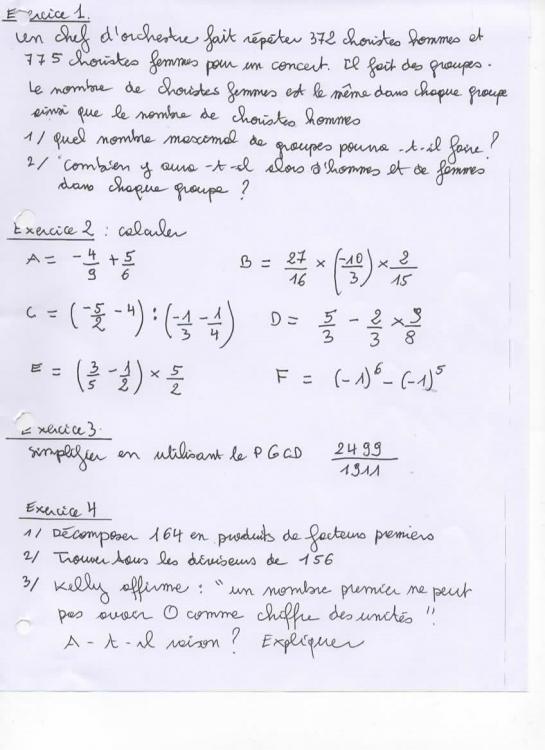 Exercice 1.
Un chef d'orchestre fait répéter 372 choristes hommes et
775 choristes femmes pour un concert. Il fait des groupes.
Le nombre de choristes femmes est le même dans chaque groupe
ainsi que le nombre de choristes hommes
1/ quel nombre maximal de groupes pourra-t-il faire ?
2/ Combien y aura-t-il alors d'hommes et de femmes
dans chaque groupe ?
Exercice 2 : calculer
A = -4/9 + 5/6 B = 27/16 × (-10/3) × 2/15
C = (-5/2 - 4) : (-1/3 - 1/4) D = 5/3 - 2/3 × 9/8
E = (3/5 - 1/2) × 5/2 F = (-1)^6 - (-1)^5
Exercice 3.
Simplifier en utilisant le PGCD 2499/1911
Exercice 4
1/ Décomposer 164 en produits de facteurs premiers
2/ Trouver tous les diviseurs de 156
3/ Kelly affirme : "un nombre premier ne peut
pas avoir 0 comme chiffre des unités"!
A-t-il raison ? Expliquer